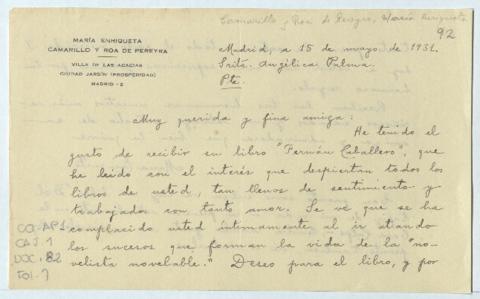 Camarillo y Roa de Pereyra, María Enriqueta
92
MARÍA ENRIQUETA
CAMARILLO Y ROA DE PEREYRA
VILLA DE LAS ACACIAS
CIUDAD JARDÍN (PROSPERIDAD)
MADRID - 2
Madrid a 15 de mayo de 1931.
Srita. Angélica Palma.
Pte.
Muy querida y fina amiga:
He tenido el
gusto de recibir su libro "Fernán Caballero", que
he leído con el interés que despiertan todos los
libros de usted, tan llenos de sentimiento y
trabajados con tanto amor. Se ve que se ha
complacido usted íntimamente al ir atando
los sucesos que forman la vida de la "no-
velista novelable." Deseo para el libro, y por
CO-AP1
CAJ. 1
DOC. 82
FOL. 1